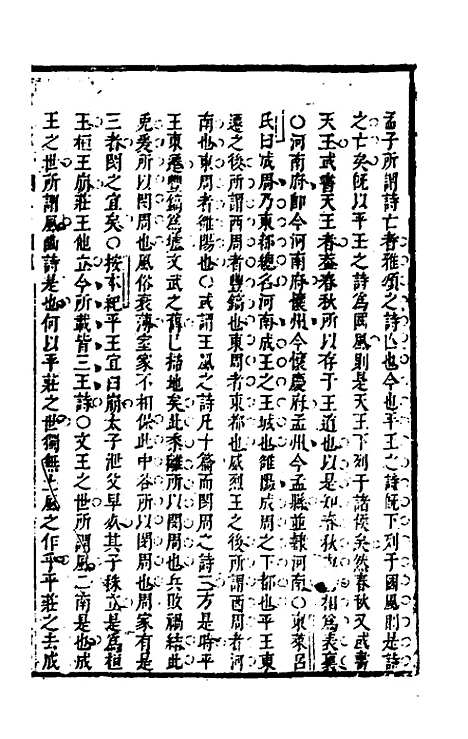 孟子所謂詩亡者雅頌之詩亡也今也平王之詩旣下列于國風則是詩
之亡矣旣以平王之詩爲國風則是天王下列于諸侯矣然春秋又或書
天王或書天王者蓋春秋所以存于王道也以是知春秋相爲表裏
○河南府即今河南府懷州今懷慶府孟州今孟縣並隸河南○東萊呂
氏曰成周乃東都總名河南成王之王城也雒陽成周之下都也平王東
遷之後所謂西周者豐鎬也東周者東都也威烈王之後所謂西周者河
南也東周者雒陽也○或謂王風之詩凡十篇而閔周之詩三方是時平
王東遷豐鎬爲墟文武之舊掃地矣此黍離所以閔周也兵敗禍結此
兎爰所以閔周也風俗衰薄室家不相保此中谷所以閔周也周家有是
三者閔之宜矣○按本紀平王宜臼崩太子泄父早死其子林立是爲桓
王桓王崩莊王他立今所載皆三王詩○文王之世所謂風二南是也成
王之世所謂風豳詩是也何以平莊之世獨無風之作乎平莊之去成